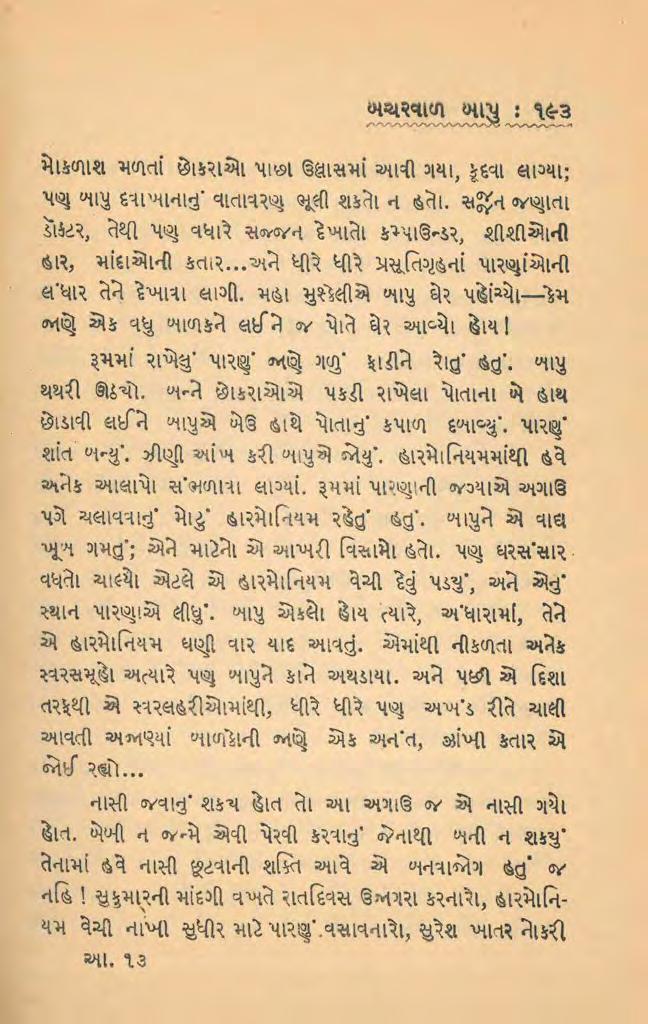 બચરવાળ બાપુ : ૧૯૩
મોકળાશ મળતાં છોકરાઓ પાછા ઉલ્લાસમાં આવી ગયા, કૂદવા લાગ્યા;
પણ બાપુ દવાખાનાનું વાતાવરણ ભૂલી શકતો ન હતો. સર્જન જણાતા
ડૉક્ટર, તેથી પણ વધારે સજ્જન દેખાતો કમ્પાઉન્ડર, શીશીઓની
હાર, માંદાઓની કતાર...અને ધીરે ધીરે પ્રસૂતિગૃહનાં પારણાંઓની
લંઘાર તેને દેખાવા લાગી. મહા મુશ્કેલીએ બાપુ ઘેર પહોંચ્યો—કેમ
જાણે એક વધુ બાળકને લઈને જ પોતે ઘેર આવ્યો હોય!
રૂમમાં રાખેલું પારણું જાણે ગળું ફાડીને રોતું હતું. બાપુ
થથરી ઊઠ્યો. બન્ને છોકરાઓએ પકડી રાખેલા પોતાના બે હાથ
છોડાવી લઈને બાપુએ બેઉ હાથે પોતાનું કપાળ દબાવ્યું. પારણું
શાંત બન્યું. ઝીણી આંખ કરી બાપુએ જોયું. હારમોનિયમમાંથી હવે
અનેક આલાપો સંભળાવા લાગ્યાં. રૂમમાં પારણાની જગ્યાએ અગાઉ
પગે ચલાવવાનું મોટું હારમોનિયમ રહેતું હતું. બાપુને એ વાદ્ય
ખૂબ ગમતું; એને માટેનો એ આખરી વિસામો હતો. પણ ઘરસંસાર
વધતો ચાલ્યો એટલે એ હારમોનિયમ વેચી દેવું પડ્યું, અને એનું
સ્થાન પારણાએ લીધું. બાપુ એકલો હોય ત્યારે, અંધારામાં, તેને
એ હારમોનિયમ ઘણી વાર યાદ આવતું. એમાંથી નીકળતા અનેક
સ્વરસમૂહો અત્યારે પણ બાપુને કાને અથડાયા. અને પછી એ દિશા
તરફથી એ સ્વરલહરીઓમાંથી, ધીરે ધીરે પણ અખંડ રીતે ચાલી
આવતી અજાણ્યાં બાળકોની જાણે એક અનંત, ઝાંખી કતાર એ
જોઈ રહ્યો...
નાસી જવાનું શક્ય હોત તો આ અગાઉ જ એ નાસી ગયો
હોત. બેબી ન જન્મે એવી પેરવી કરવાનું જેનાથી બની ન શક્યું
તેનામાં હવે નાસી છૂટવાની શક્તિ આવે એ બનવાજોગ હતું જ
નહિ ! સુકુમારની માંદગી વખતે રાતદિવસ ઉજાગરા કરનારો, હારમોનિ-
યમ વેચી નાંખી સુધીર માટે પારણું વસાવનારો, સુરેશ ખાતર નોકરી
આ. ૧૩